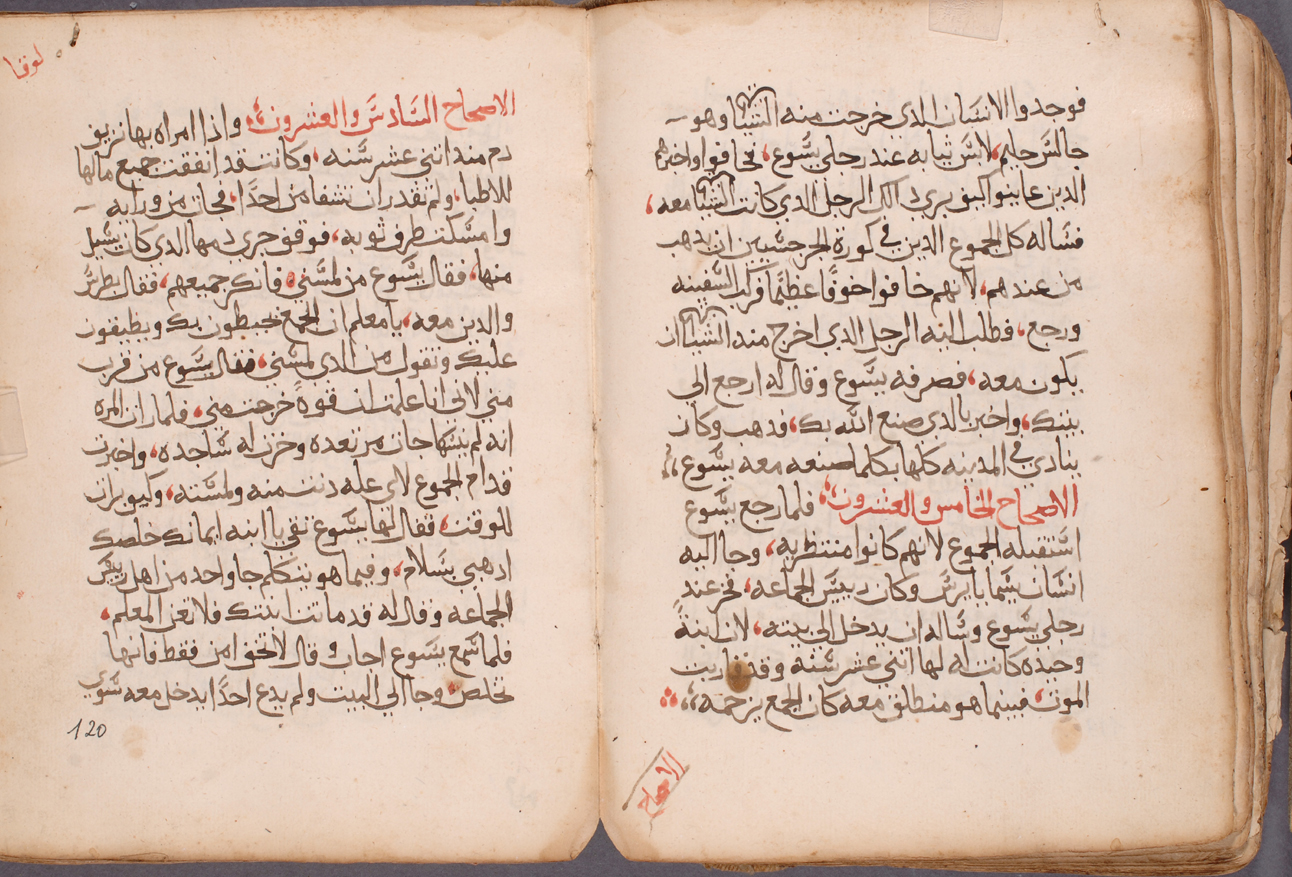 فوجدوا الانسان الذي خرجت منه الشياطين وهو
جالس حليم، لابس ثيابه عند رجلي يسوع، فخافوا واخبرهم
الدين عاينوا كيف بري دالك الرجل الدي كانت الشياطين معه،
فساله كل الجموع الدين في كورة الجرجسيين ان يدهب
من عندهم، لانهم خافوا خوفًا عظيمًا فركب السفينه
ورجع، فطلب اليه الرجل الدي اخرج منه الشياطين ان
يكون معه، فصرفه يسوع وقال له ارجع الي
بيتك، واخبر بالدي صنع الله بك، فدهب وكان
ينادي في المدينه كلها بكلما صنعه معه يسوع،
الاصحاح الخامس والعشرون، فلما رجع يسوع
استقبله الجموع لانهم كانوا منتظريه، وجا اليه
انسان يسما يايرس وكان رييس الجماعه، فخر عند
رجلي يسوع وساله ان يدخل الي بيته، لان ابنةً
وحيده كانت له لها اثني عشر سنه وقد قاربت
الموت، فبينما هو منطلق معه كان الجمع يزحمه،
الاصحاح
لوقا
الاصحاح السادس والعشرون، وادا امراه بها نزيف
دم مند اثني عشر سنه، وكانت قد انفقت جميع مالها
للاطبا، ولم تقدر ان تشفا من احدًا، فجات من ورايه
وامسكت طرف ثوبه، فوقف جري دمها الدي كان يسيل
منها، فقال يسوع من لمسني، فانكر جميعهم، فقال بطرس
والدين معه، يا معلم ان الجمع محيطون بك ويطيفون
عليك وتقول من الدي لمسني، فقال يسوع من قرب
مني لاني انا علمت ان قوةً خرجت مني، فلما رات المره
انه لم ينسها جات مرتعده وخرت له ساجده، واخبرت
قدام الجموع لاي عله دنت منه ولمسته، وكيف برات
للوقت، فقال لها يسوع ثقي يا ابنه ايمانك خلصك
ادهبي بسلام، وفيما هو يتكلم جا واحد من اهل رييس
الجماعه وقال له قد ماتت ابنتك فلا تعن المعلم،
فلما سمع يسوع اجاب وقال لا تخف امن فقط فانها
تخلص، وجا الي البيت ولم يدع احدًا يدخل معه سوي
120